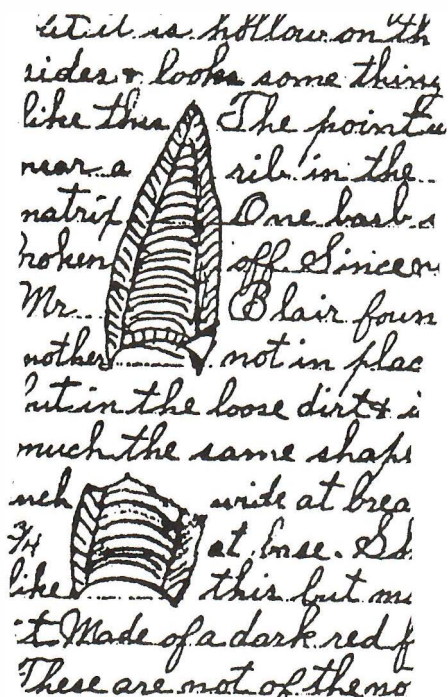 ut it is hollow on th
sides & looks some thing
like this The point w
near a rib in the
matrix One barb s
roken off Since
Mr. Blair foun
nother not in plac
but in the loose dirt & i
much the same shape
nch wide at brea
3/4 at base. Sh
like this but m
t Made of a dark red f
These are not of the no